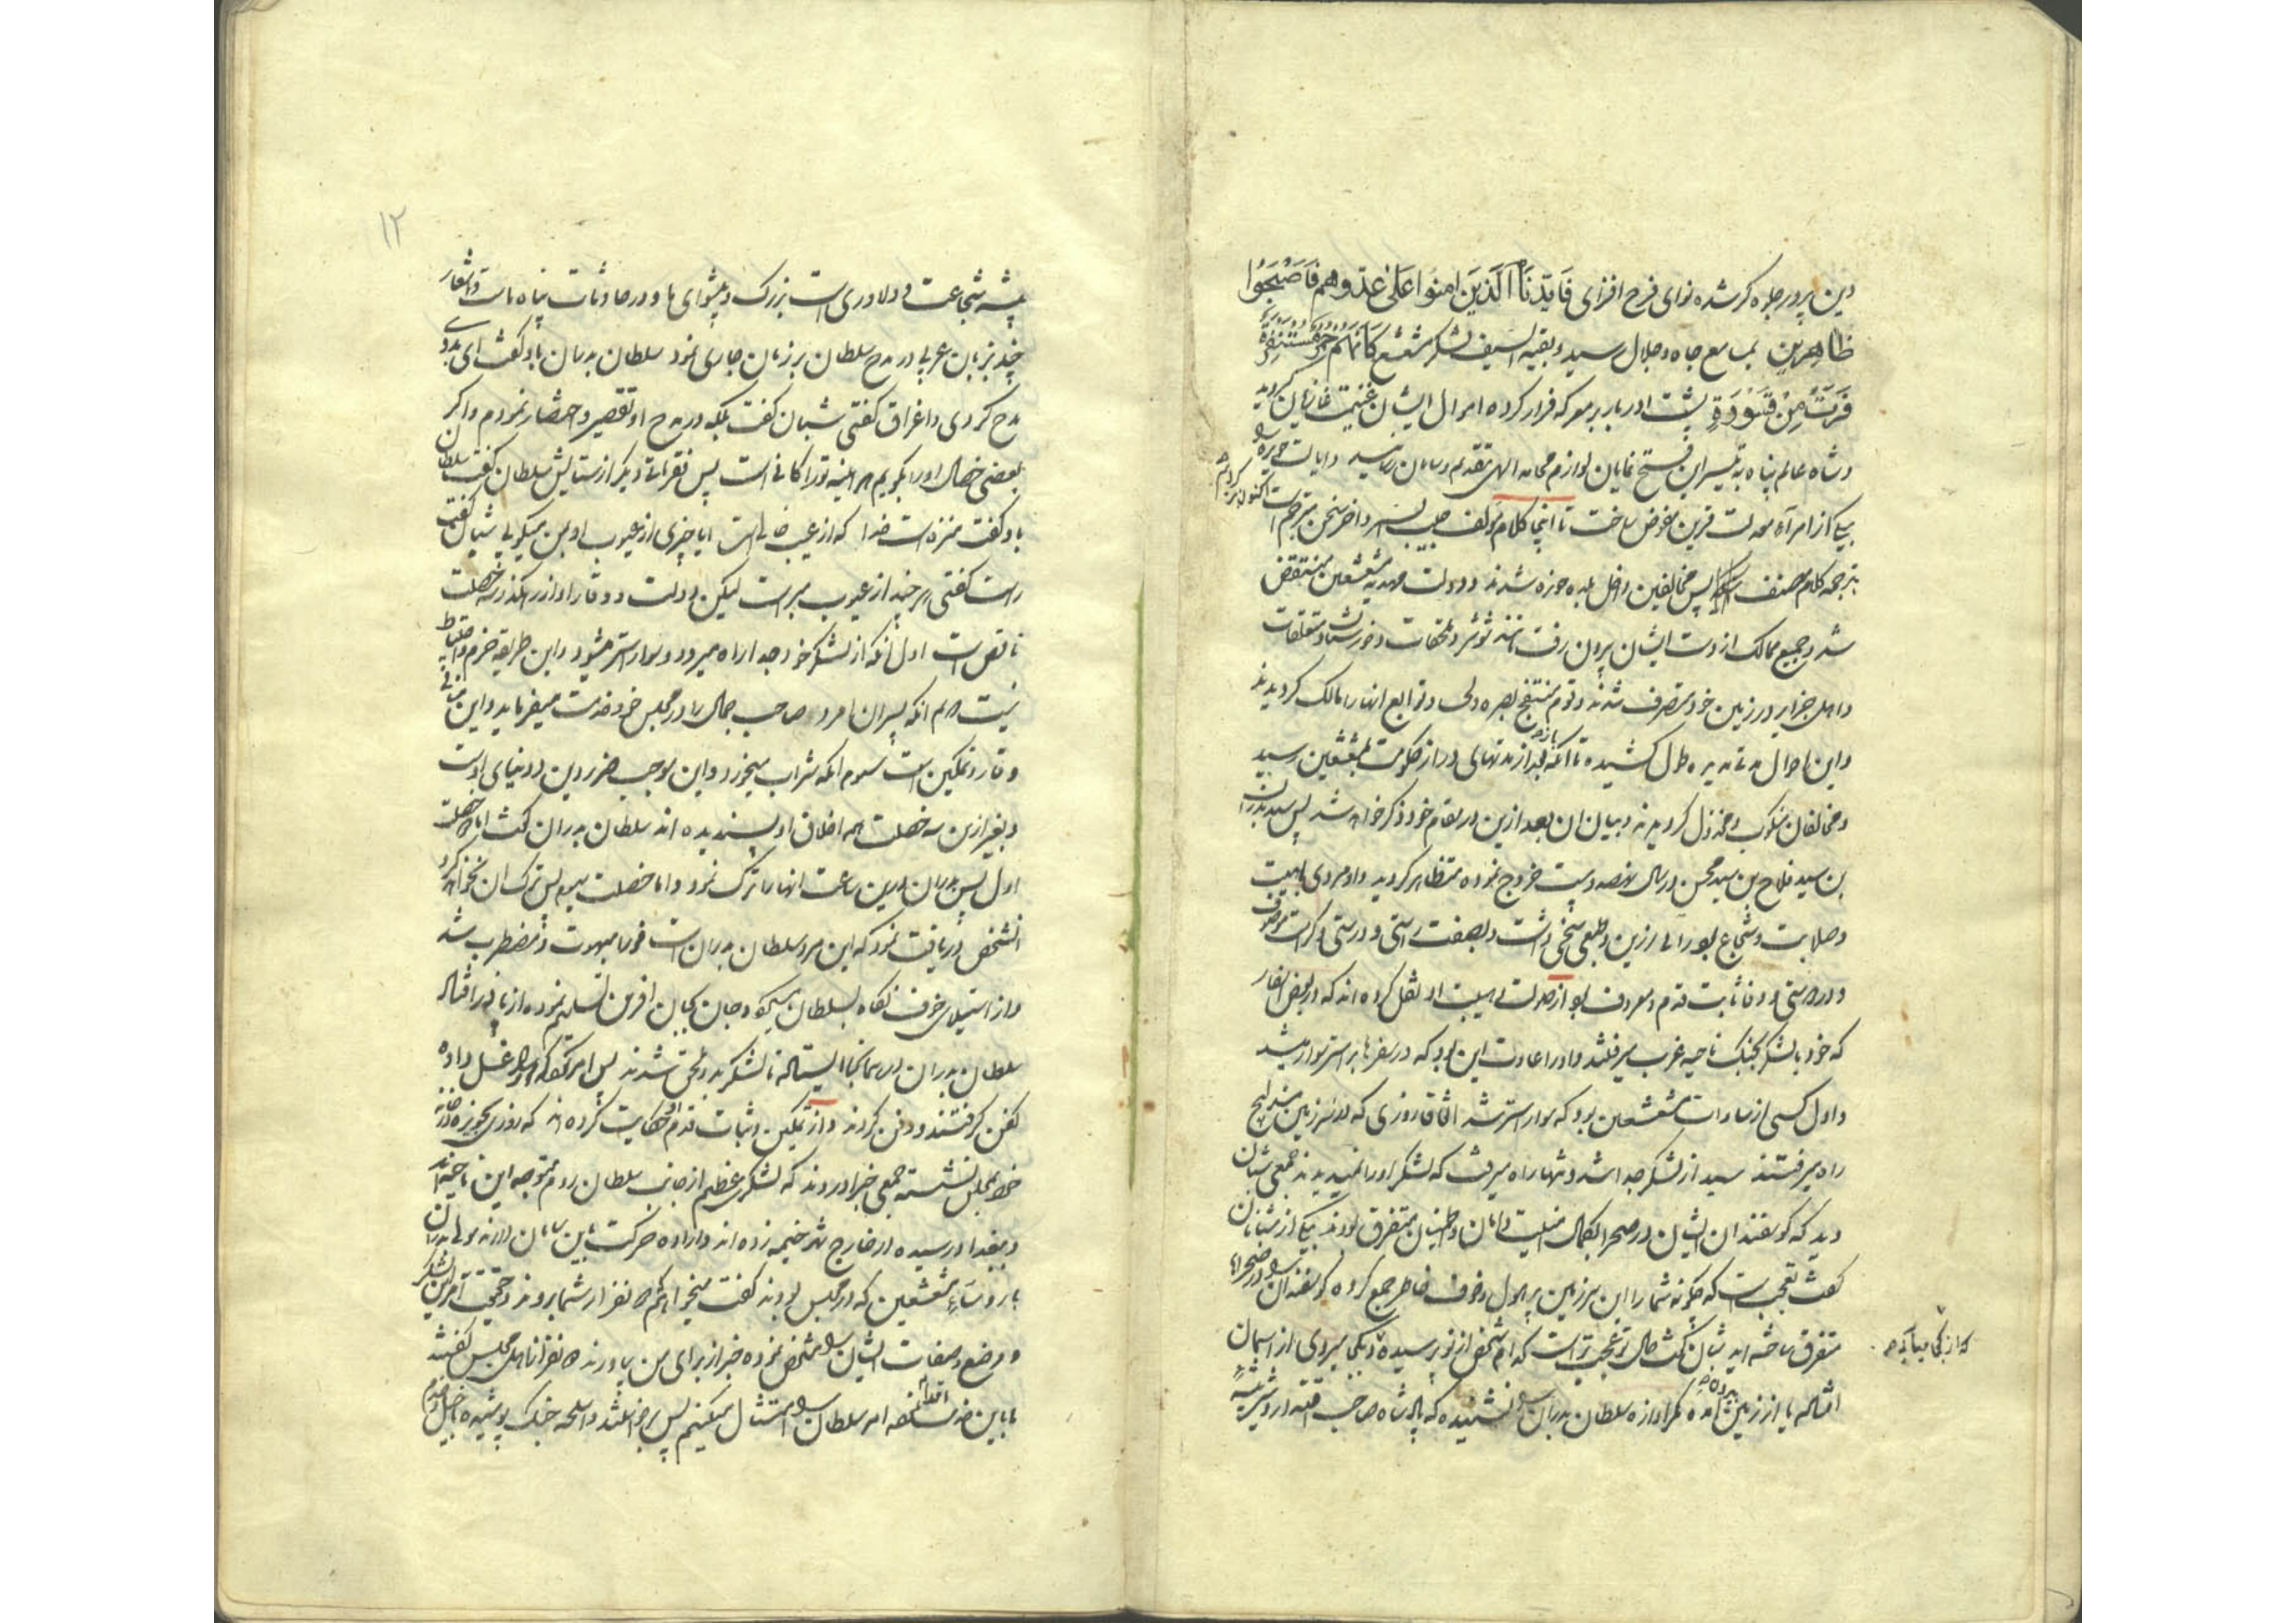 دین پرور جلوه کر شده نوای فرح افزای فَاَیَّدْنَا الَّذِینَ اٰمَنُوا عَلٰی عَدُوِّهِمْ فَاَصْبَحُوا
ظاهِرِینَ بمسامع جاه و جلال رسید و بقیه السیف لشکر مشعشع کَاَنَّهُمْ حُمُرٌ مُسْتَنْفِرَةٌ
فَرَّتْ مِنْ قَسْوَرَةٍ پشت ادبار بر معرکه فرار کرده اموال ایشان غنیمت غازیان کردید
و شاه عالم پناه به تیسیر این فتح نمایان لوازم محامد الهی بتقدیم رسانید و ایالت حویزه را
بیکی از امراء معدلت قرین مفوض ساخت تا اینجا کلام مؤلف حبیب السیر و اخر سخن مترجم است اکنون برکردیم
بترجمه کلام مصنف پس مخالفین داخل بلده حویزه شدند و دولت مهدیه مشعشعین منتقض
شد و جمیع ممالک از دست ایشان بیرون رفت مانند شوشتر و ملحقات و خورستان و متعلقات
و اهل جزایر در زمین خود متصرف شدند و قوم منتفج بصره و لحسا و توابع انها را مالک کردیدند
و این احوال مدت مدیره طول کشیده تا انکه بعد از مدتهای دراز باز حکومت بمشعشعین رسید
و مخالفان منکوب و مخذول کردیدند و بیان ان بعد ازین در مقام خود ذکر خواهد شد پس سید بدران
بن سید فلاح بن سید محسن در سال نهصد و بیست خروج نموده متظاهر کردید و او مردی با هیبت
و صلابت و شجاع بود رائی رزین و طبعی سخی داشت و بصفت راستی و درستی و کرامت موصوف
و در دوستی و وفا ثابت قدم و معروف بود از صولت و هیبت او نقل کرده اند که در بعض اسفار
که خود با لشکر بجنک ناحیه غرب میرفتند و او را عادت این بود که در سفرها بر استر سوار میشد
و اول کسی از سادات مشعشعین بود که سوار استر شد اتفاقا روزی که در سرزمین
راه میرفتند سید از لشکر جدا شد و تنها راه میرفت که لشکر او را نمیدیدند جمعی شبان
دید که کوسفندان ایشان در صحرا بکمال امنیت و امان و اطمینان متفرق بودند بیکی از شبانان
کفت تعجب است که چکونه شما را این سرزمین پر هول و خوف خاطر جمع کرده کوسفندان را در صحرا
متفرق ساخته اید شبان کفت حال تو عجب تر است که ام شخص از تو پرسیده و یکی میروی از اسمان
که از کجا میآیی و
افتاده یا از زمین بیرون آمده مکر اوازه سلطان بدران را نشنیده که پادشاه صاحب
۱۲
پیشه شجاعت و دلاوری است بزرک و پیشوای ما و در حادثات پناه ماست و اشعار
چند بزبان عربی در مدح سلطان بر زبان جاری نمود سلطان بدران باو کفت ای بدوی
مدح کردی و اغراق کفتی شبان کفت بلکه در مدح او تقصیر و اختصار نمودم و اکر
بعضی خصال او را بکویم هر اینه تو را کافی است پس فقرات دیکر از ستایش سلطان کفت سلطان
باو کفت منزه است خدا که از عیب خالی است ایا چیزی از عیوب او بمن میکویی شبان کفت
راست کفتی هر چند از عیوب مبراست لیکن دولت و وقار او از رهکذر سه خصلت
ناقص است اول انکه از لشکر خود جدا راه میرود و سوار استر میشود و این طریقه حزم و احتیاط
نیست دوم انکه پسران امرد صاحب جمال را در مجلس خود خدمت میفرماید و این منافی
وقار و تمکین است سوم انکه شراب میخورد و این موجب ضرر دین و دنیای اوست
و بغیر ازین سه خصلت همه اخلاق او پسندیده اند سلطان بدران کفت اما دو خصلت
اول پس بدران درین ساعت انها را ترک نمود و اما خصلت سیم پس ترک ان نخواهد کرد
انشخص دریافت نمود که این مرد سلطان بدران است فورا مبهوت و مضطرب شد
و از استیلای خوف نکاه بسلطان میکرد و جان بجان افرین تسلیم نموده از پا درافتاد
سلطان بدران در همانجا ایستاد تا لشکر بدو ملحق شدند پس امر نمود که او را غسل داده
کفن کرفتند و دفن کردند و از تمکین و ثبات قدم او حکایت کرده اند که روزی بحویزه در خانه
خود بمجلس نشسته جمعی خبر اوردند که لشکری عظیم از جانب سلطان روم متوجه این ناحیه اند
و ببغداد رسیده در خارج شهر خیمه زده اند و اراده حرکت باین سامان دارند مولا بدران
با رؤساء مشعشعین که در مجلس بودند کفت میخواهم ده نفر از شما بروند و حقیقت امر این لشکر
و وضع و صفات ایشان را مشخص نموده خبر از برای من بیاورند ده نفر از اهل مجلس کفتند
ما باین خدمت اقدام نموده امر سلطان را امتثال میکنیم پس برخواستند و اسلحه جنک پوشیده